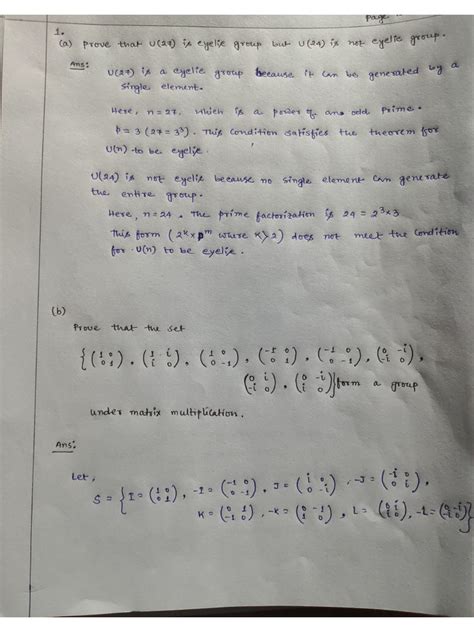 page
1.
(a) prove that U(27) is cyclic group but U(24) is not cyclic group.
Ans:
U(27) is a cyclic group because it can be generated by a
single element.
Here, n=27, which is a power of an odd prime.
p=3 (27=3³). This condition satisfies the theorem for
U(n) to be cyclic.
U(24) is not cyclic because no single element can generate
the entire group.
Here, n=24. The prime factorization is 24 = 2³×3
This form (2ᵏ×pᵐ where k>2) does not meet the condition
for U(n) to be cyclic.
(b)
Prove that the set
form a group
under matrix multiplication.
Ans:
Let,
S = { I = (1 0; 0 1), -I = (-1 0; 0 -1), J = (i 0; 0 -i), -J = (-i 0; 0 i),
K = (0 1; -1 0), -K = (0 -1; 1 0), L = (0 i; i 0), -L = (0 -i; -i 0) }